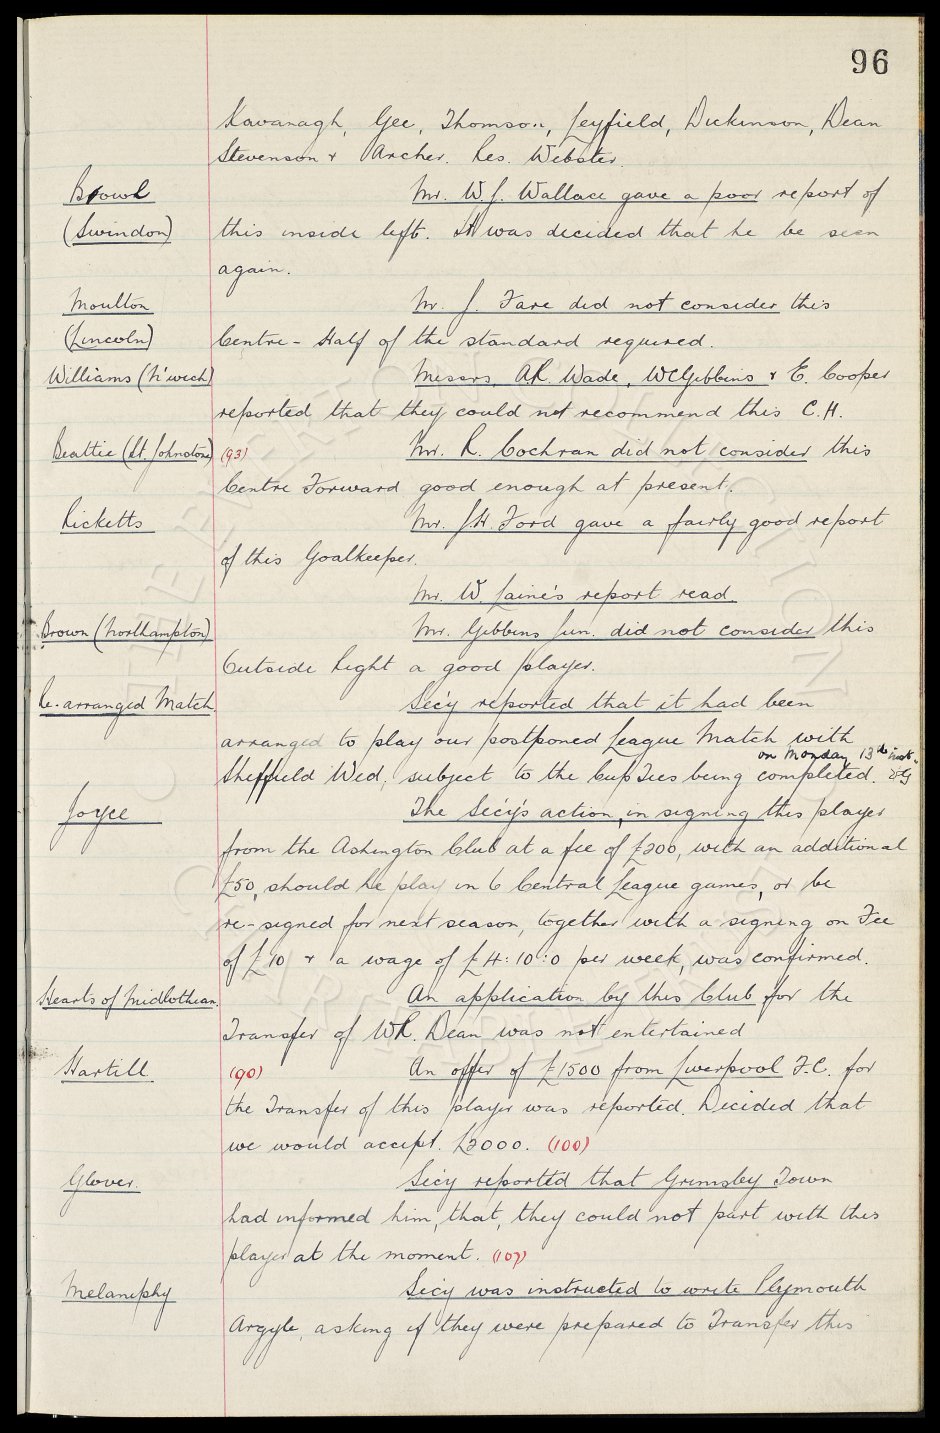 96
Kavanagh, Gee, Thomson, Leyfield, Dickinson, Dean
Stevenson & Archer. Res. Webster.
Browl Mr. W.J. Wallace gave a poor report of
(Swindon) this inside left. It was decided that he be seen
again.
Moulton Mr. J. Fare did not consider this
(Lincoln) Centre-Half of the standard required.
Williams (N'wich) Messrs. A.R. Wade, W.C. Gibbins & E. Cooper
reported that they could not recommend this C.H.
Beattie (St. Johnstone) (93) Mr. R. Cochran did not consider this
Centre Forward good enough at present.
Ricketts Mr. J.H. Ford gave a fairly good report
of this Goalkeeper.
Mr. W. Laine's report read
Brown (Northampton) Mr. Gibbins Jun. did not consider this
Outside Right a good player.
Re-arranged Match Sec'y reported that it had been
arranged to play our postponed League Match with
on Monday 13th inst.
Sheffield Wed, subject to the Cup Ties being completed.
Joyce The Sec'y's action, in signing this player
from the Ashington Club at a fee of £200, with an additional
£50, should he play in 6 Central League games, or be
re-signed for next season, together with a signing on Fee
of £10 & a wage of £4:10:0 per week, was confirmed.
Hearts of Midlothian. An application by this Club for the
Transfer of W.R. Dean was not entertained
Hartill (90) An offer of £1500 from Liverpool F.C. for
the Transfer of this player was reported. Decided that
we would accept. £2000. (100)
Glover. Sec'y reported that Grimsby Town
had informed him, that, they could not part with this
player at the moment. (107)
Melaniphy Sec'y was instructed to write Plymouth
Argyle, asking if they were prepared to Transfer this